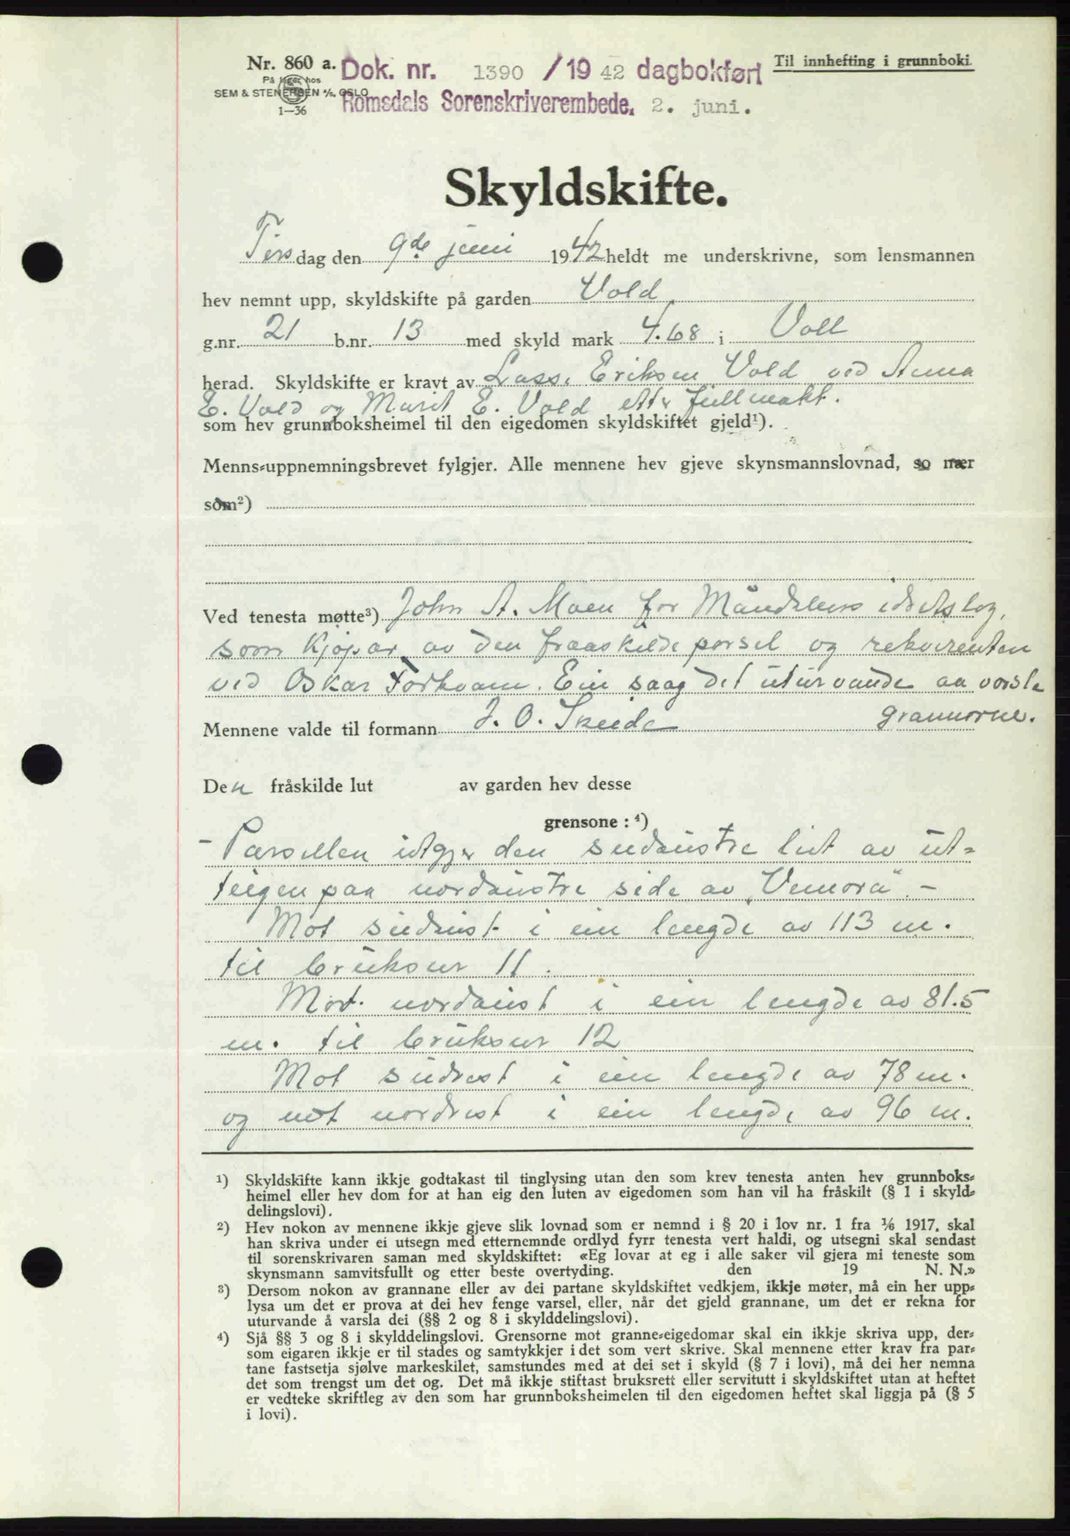 Nr. 860 a.
På lager hos
SEM & STENERSEN A/S, OSLO
1—36
Dok. nr. 1390 /19 42 dagbokført
Romsdals Sorenskriverembede. 2. juni.
Til innhefting i grunnboki.
Skyldskifte.
Tirsdag den 9de juni 1942 heldt me underskrivne, som lensmannen
hev nemnt upp, skyldskifte på garden Vold
g.nr. 21 b.nr. 13 med skyld mark 4.68 i Voll
herad. Skyldskifte er kravt av Lass. Eriksen Vold ved Anna
E. Vold og Marit E. Vold etter fullmakt.
som hev grunnboksheimel til den eigedomen skyldskiftet gjeld¹).
Menns-uppnemningsbrevet fylgjer. Alle mennene hev gjeve skynsmannslovnad, so nær
som²)
Ved tenesta møtte³) John A. Moen for Måndalens idrettslag,
som kjøpar av den fraaskilde parsel og rekvirenten
ved Oskar Forkvam. Ein saag det uturvande aa varsle
grannorne.
Mennene valde til formann J. O. Skeide
Den fråskilde lut av garden hev desse
grensone : ⁴)
- Parsellen utgjer den sudaustre lut av ut-
teigen paa nordaustre side av "Venora". -
Mot sudaust i ein lengde av 113 m.
til bruksnr 11.
Mot nordaust i ein lengde av 81.5
m. til bruksnr 12
Mot sudvest i ein lengde av 78 m.
og mot nordvest i ein lengde av 96 m.
¹) Skyldskifte kann ikkje godtakast til tinglysing utan den som krev tenesta anten hev grunnboks-
heimel eller hev dom for at han eig den luten av eigedomen som han vil ha fråskilt (§ 1 i skyld-
delingslovi).
²) Hev nokon av mennene ikkje gjeve slik lovnad som er nemnd i § 20 i lov nr. 1 fra 1/6 1917, skal
han skriva under ei utsegn med etternemnde ordlyd fyrr tenesta vert haldi, og utsegni skal sendast
til sorenskrivaren saman med skyldskiftet: «Eg lovar at eg i alle saker vil gjera mi teneste som
skynsmann samvitsfullt og etter beste overtyding. den 19 N. N.»
³) Dersom nokon av grannane eller av dei partane skyldskiftet vedkjem, ikkje møter, må ein her upp-
lysa um det er prova at dei hev fenge varsel, eller, når det gjeld grannane, um det er rekna for
uturvande å varsla dei (§§ 2 og 8 i skylddelingslovi).
⁴) Sjå §§ 3 og 8 i skylddelingslovi. Grensorne mot granne-eigedomar skal ein ikkje skriva upp, der-
som eigaren ikkje er til stades og samtykkjer i det som vert skrive. Skal mennene etter krav fra par-
tane fastsetja sjølve markeskilet, samstundes med at dei set i skyld (§ 7 i lovi), må dei her nemna
det som trengst um det og. Det må ikkje stiftast bruksrett eller servitutt i skyldskiftet utan at heftet
er vedteke skriftleg av den som har grunnboksheimelen til den eigedomen heftet skal liggja på (§ 5
i lovi).